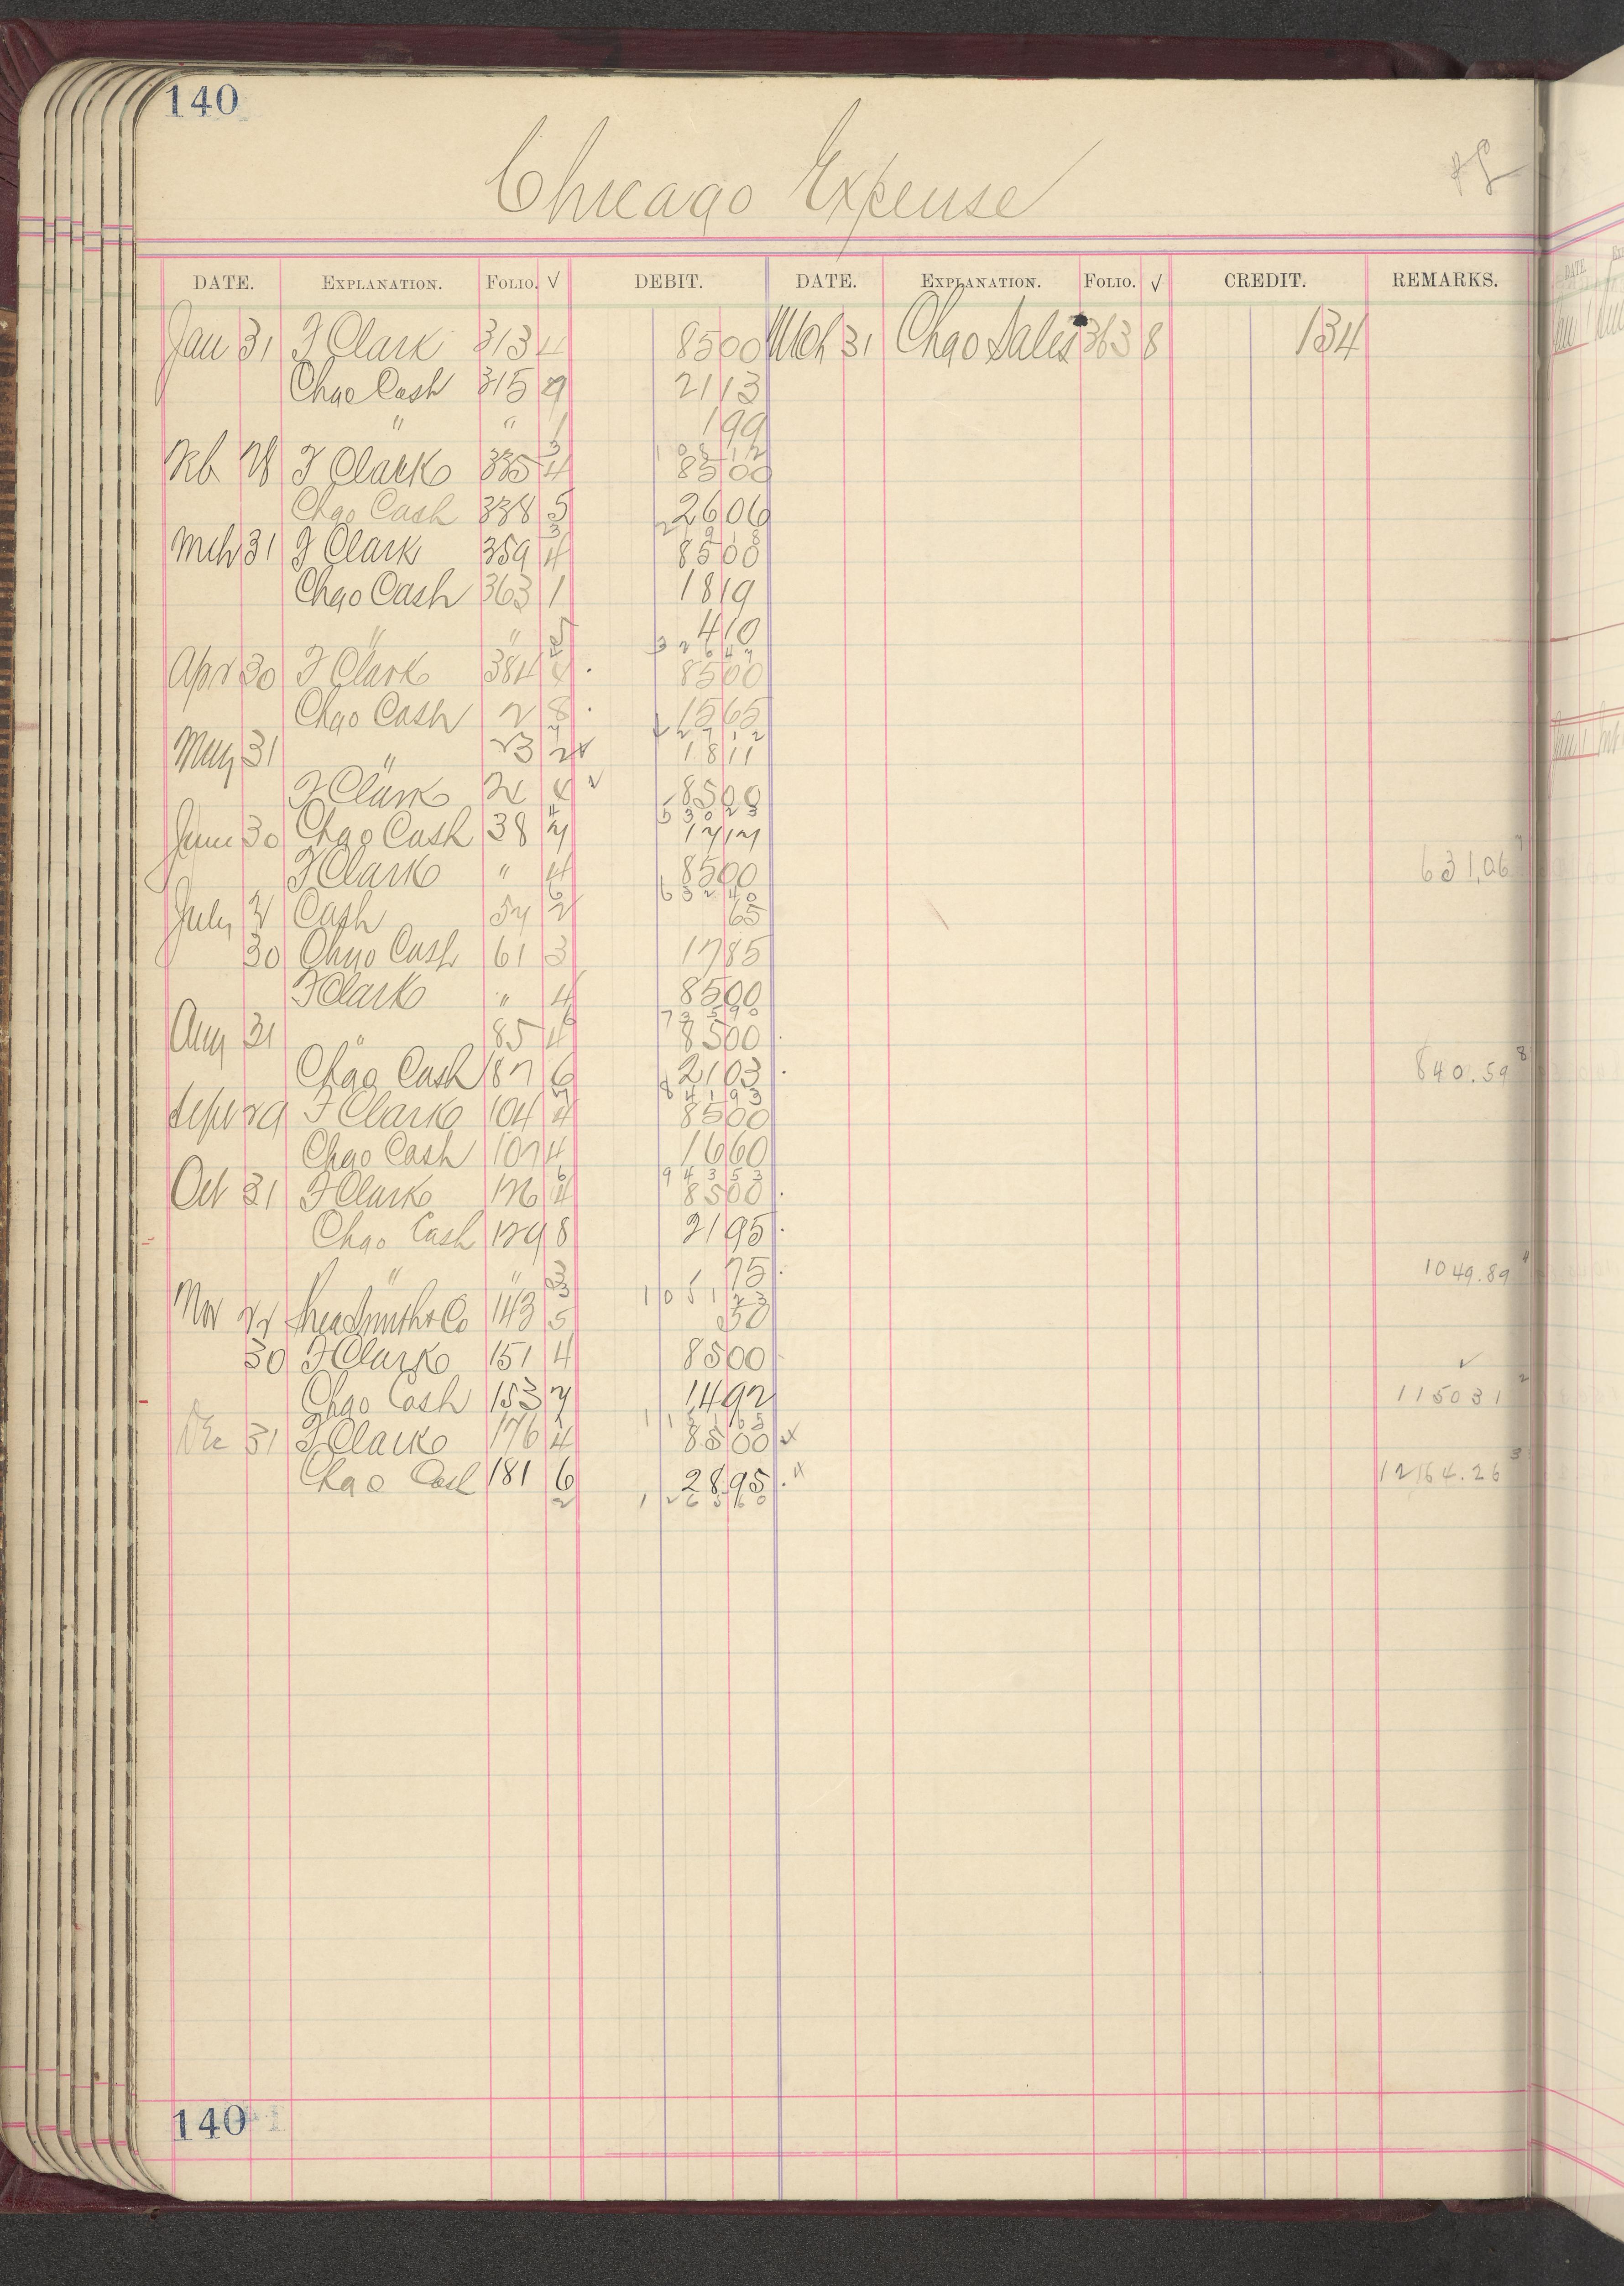 140
Chicago Expense
DATE. EXPLANATION. FOLIO. √ DEBIT. DATE. EXPLANATION. FOLIO. √ CREDIT. REMARKS.
Jan 31 F Clark 313 4 8500 Mch 31 Chgo Sales 363 8 134
Chgo Cash 315 9 2113
" " 1 199
3 10812
Feb 28 F Clark 335 4 8500
Chgo Cash 338 5 2606
3 21918
Mch 31 F Clark 359 4 8500
Chgo Cash 363 1 1819
" " 410
32647
Apr 30 F Clark 384 4 8500
Chgo Cash 2 8 1565
42712
May 31 " 23 2 1811
F Clark 24 4 √ 8500
53023
June 30 Chgo Cash 38 7 1717
F Clark " 4 8500 631.06
63240
July 2 Cash 57 2 65
30 Chgo Cash 61 3 1785
F Clark " 4 8500
73590
Aug 31 " 85 4 8500
Chgo Cash 87 6 2103 840.59 8
84193
Sept 29 F Clark 104 4 8500
Chgo Cash 107 4 1660
94353
Oct 31 F Clark 126 4 8500
Chgo Cash 129 8 2195
" " 75 1049.89 4
105123
Nov 143 5 50
30 F Clark 151 4 8500 √
Chgo Cash 153 7 1492 115031 2
115165
Dec 31 F Clark 176 4 8500
Chgo Cash 181 6 2895 1264.26 3
2 126560
140